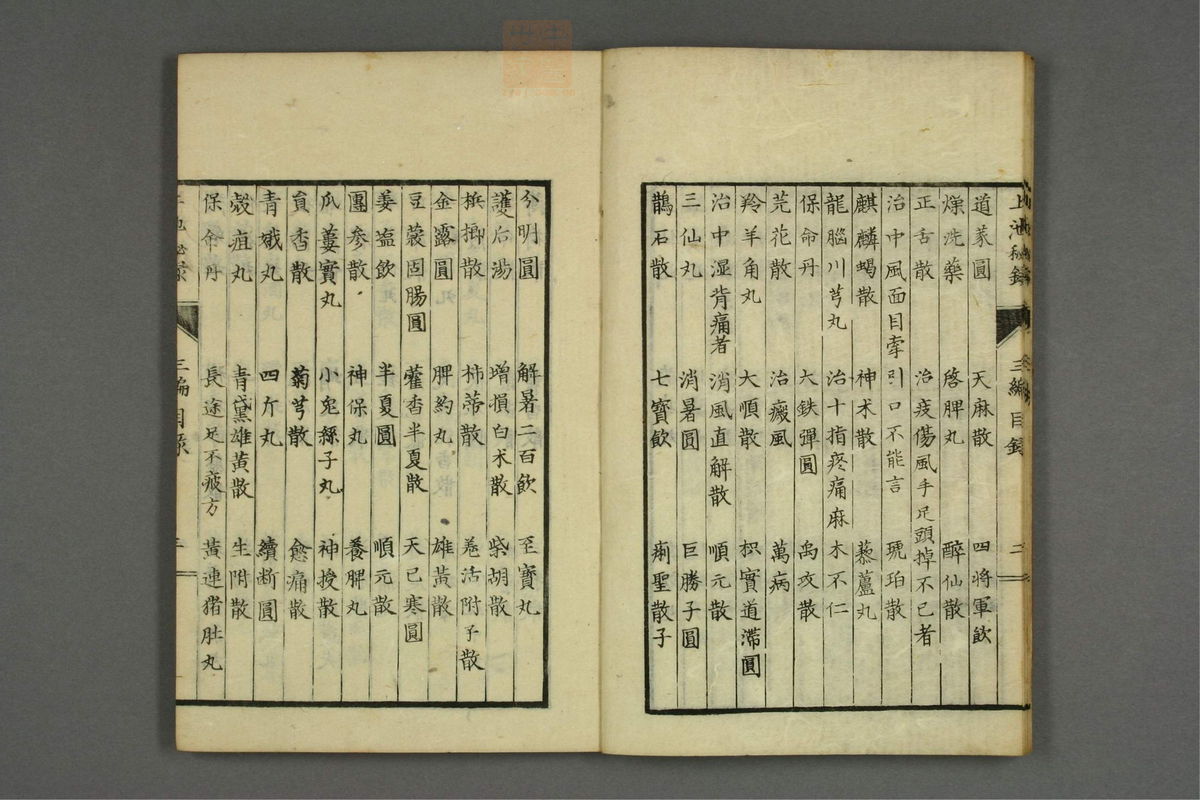 上池秘錄 三編目錄 二
道蒙圓 天麻散 四將軍飲
燥洗藥 啓脾丸 醉仙散
正舌散 治疫傷風手足頭掉不已者
治中風面目牽引口不能言 琥珀散
麒麟蝎散 神朮散 藜蘆丸
龍腦川芎丸 治十指疼痛麻木不仁
保命丹 大鉄彈圓 禹攻散
芫花散 治癜風 萬病
羚羊角丸 大順散 枳實道滯圓
治中湿背痛者 消風直解散 順元散
三仙丸 消暑圓 巨勝子圓
鵲石散 七寶飲 痢聖散子
分明圓 解暑二百飲 至寶丸
護后湯 增損白朮散 柴胡散
檳揤散 柿蒂散 羗活附子散
金露圓 脾約丸 雄黃散
豆蔻固腸圓 藿香半夏散 天已寒圓
姜盐飲 半夏圓 順元散
團参散 神保丸 養脾丸
瓜蔞實丸 小兔絲子丸 神授散
香散 菊芎散 愈痛散
青娥丸 四斤丸 續断圓
殼疽丸 青黛雄黃散 生附散
保命丹 長途足不疲方 黃連猪肚丸
三編目錄